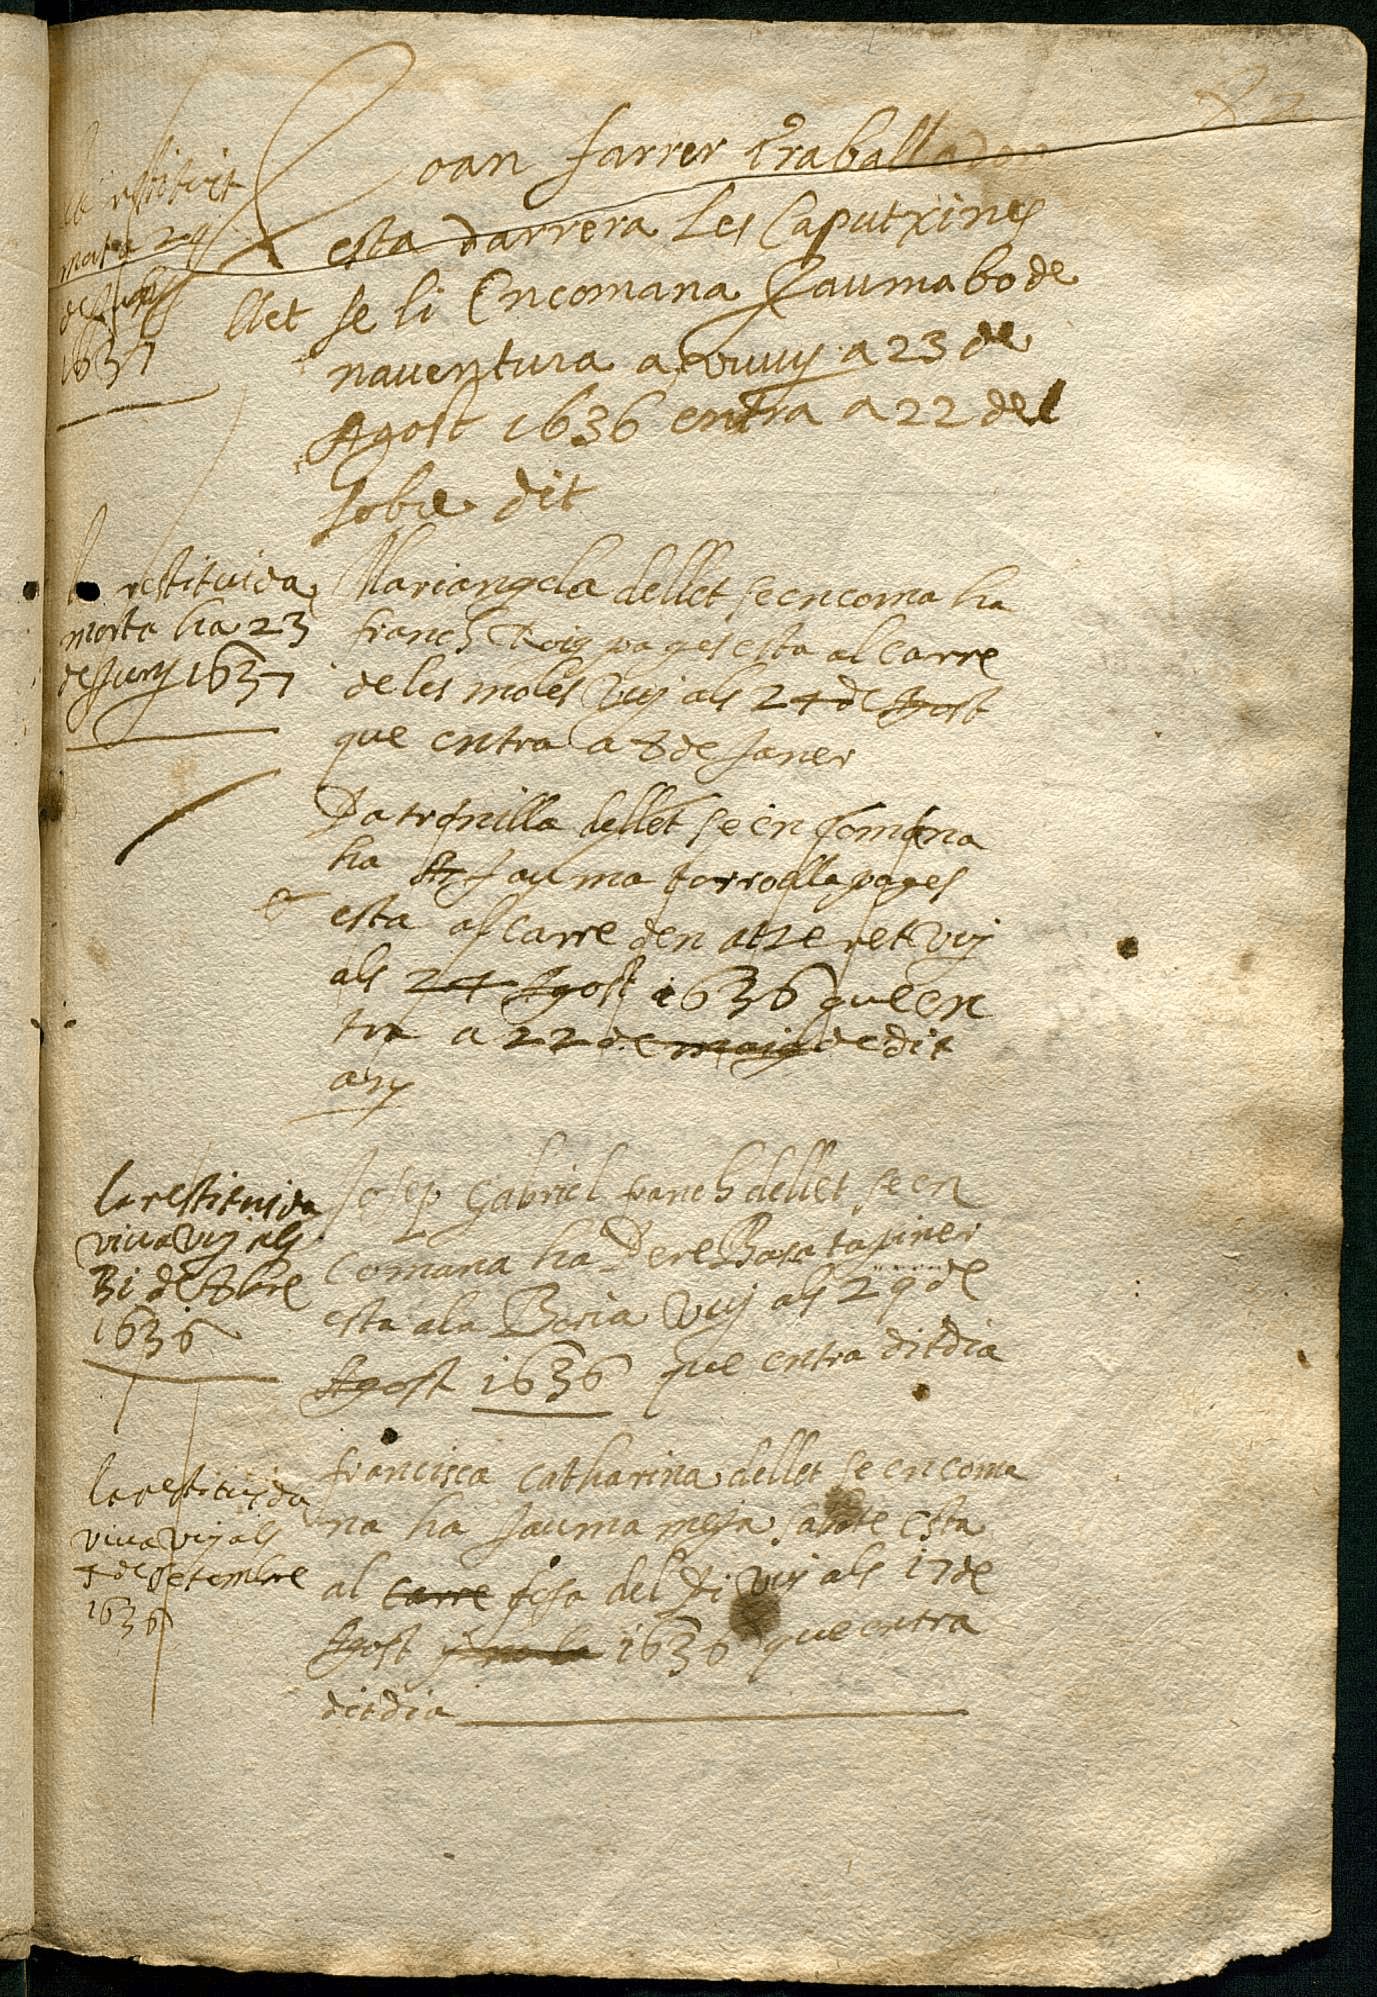 82
Joan farrer traballador
esta darrera les Caputxines
llet se li Encomana Jauma bo de
nauentura a vuuy a 23 de
Agost 1636 entra a 22 del
sobre dit
la restituit
mort a 29
1637
Mariangela dellet se encoma ha
franch Roig pages esta al carre
de les moles vuy als 24 de Agost
que entra a 8 de Janer
la restituida
morta ha 23
de Juny 1637
Patronilla dellet se en comana
ha Jauma torroella pages
esta al carre den atzeret vuy
als 24 Agost 1636 que en
tra a 22 de maig de dit
any
Josep Gabriel franch dellet se en
comana ha Pere Basa tapiner
esta a la Boria vuy als 29 de
Agost 1636 que entra dit dia
la restituida
viua vuy als
31 de 8bre
1636
francisca catharina dellet se encoma
na ha Jauma mesa sastre esta
al carre fosa del Pi vuy als 17 de
Agost 1636 que entra
dit dia
la restituida
viua vuy als
4 de setembre
1636